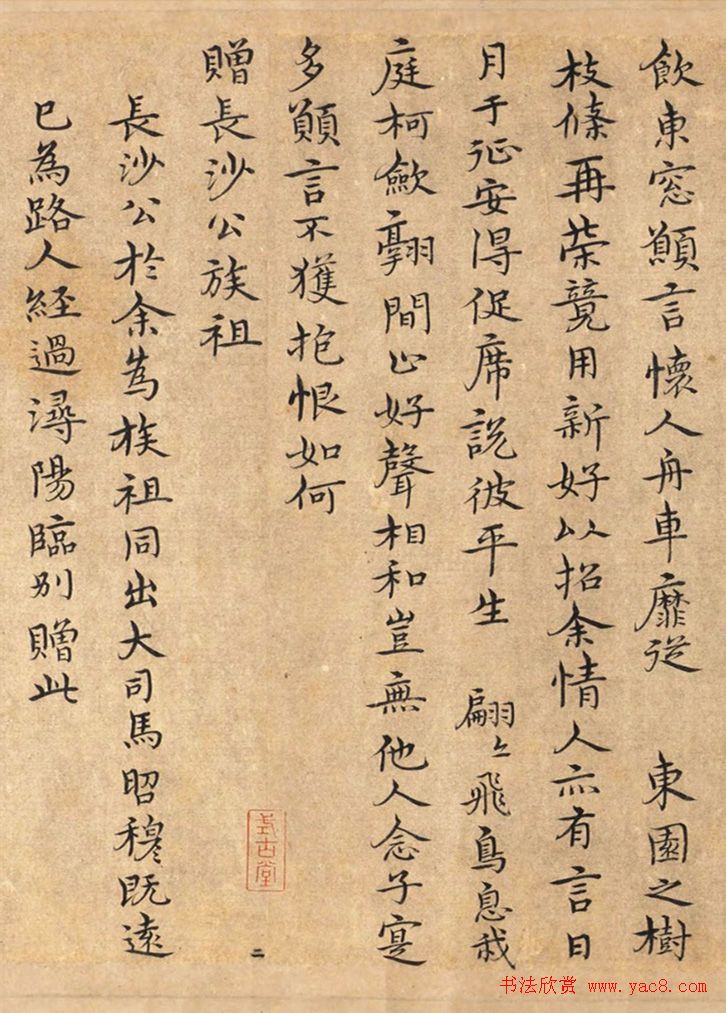 飲東窓願言懷人舟車靡從　東園之樹
枝條再榮競用新好以招余情人亦有言日
月于征安得促席說彼平生　翩〻飛鳥息我
庭柯斂翮閒止好聲相和豈無他人念子寔
多願言不獲抱恨如何
贈長沙公族祖
長沙公於余為族祖同出大司馬昭穆既遠
已為路人經過潯陽臨別贈此
式古堂
二
书法欣赏 www.yac8.com